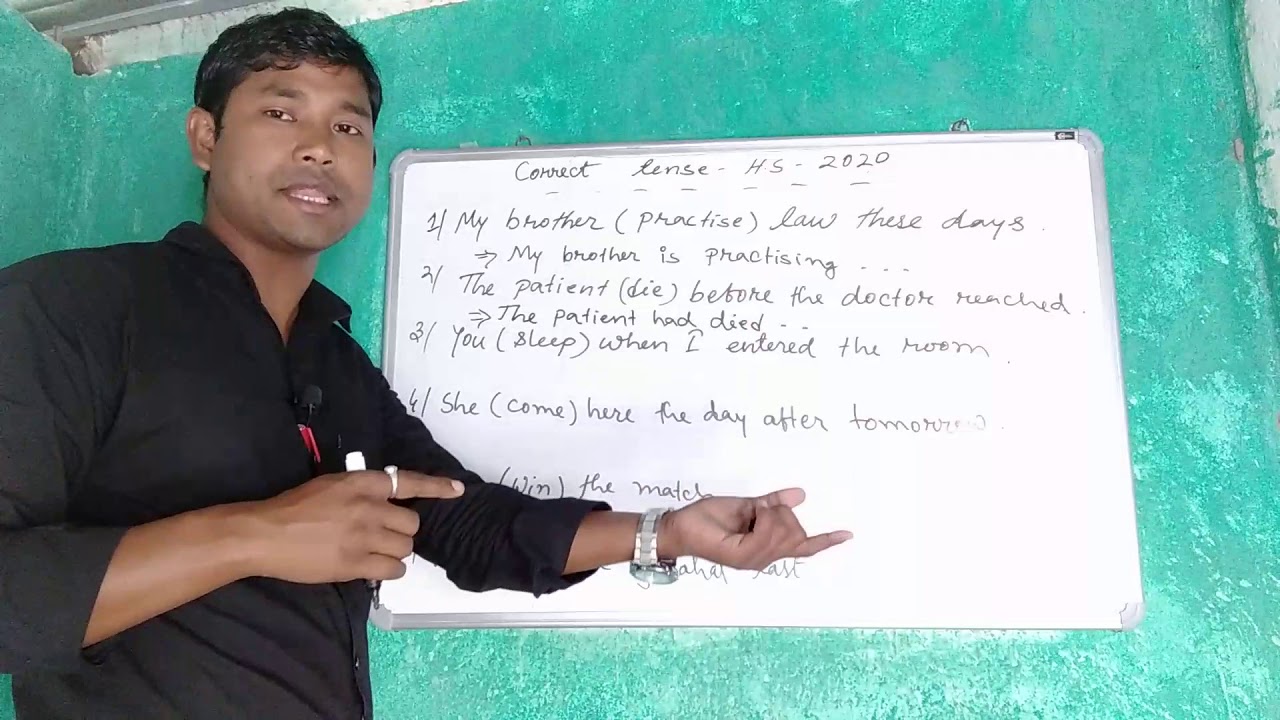 Correct tense - H.S - 2020
1/ My brother (practise) law these days.
⇒ My brother is practising ...
2/ The patient (die) before the doctor reached.
⇒ The patient had died ...
3/ You (sleep) when I entered the room.
4/ She (come) here the day after tomorrow.
(win) the match
last